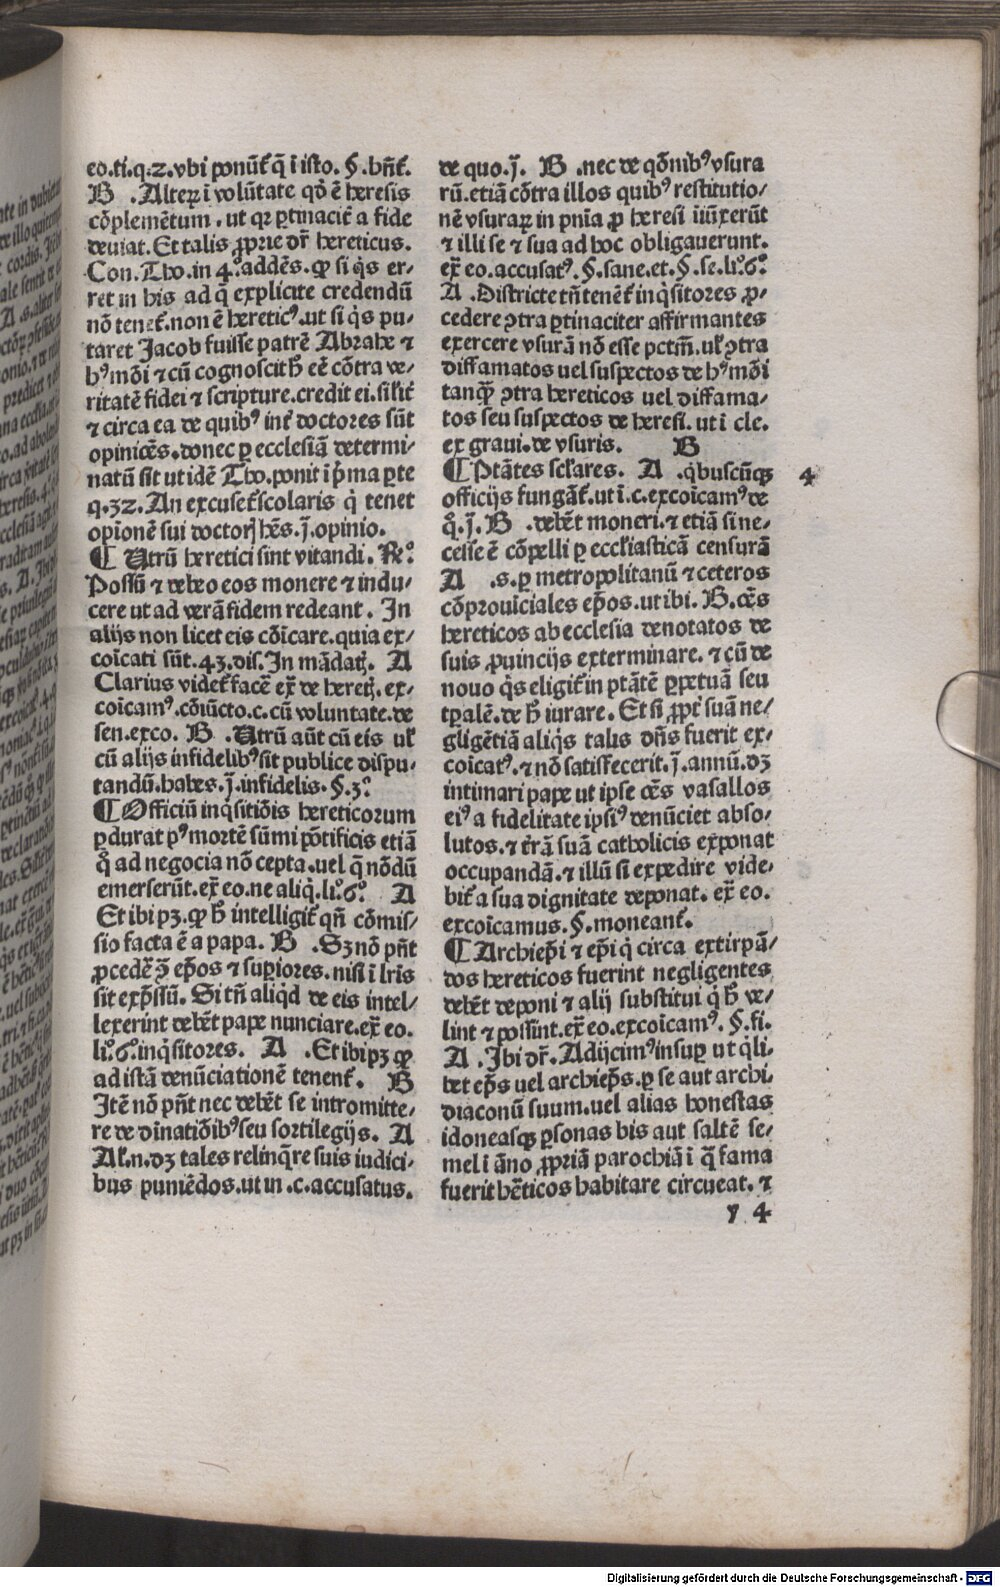 eo.ti.q.2.vbi ponūt᷑ q̄ i isto. §.bn̄t᷑.
B .Alteꝝ i volūtate qd̄ ē heresis
cōplemētum . ut qꝛ ꝑtinacit᷑ a fide
deuiat. Et talis ꝓprie dr̄ hereticus.
Con. Tho. in 4°. addēs. ꝙ si q̇s er/
ret in his ad q̄ explicite credendū
nō tenet᷑.non ē heretic⁹.ut si q̇s pu/
taret Jacob fuisse patrē Abrahe ⁊
h⁹mōi ⁊ cū cognoscit h̄ eē cōtra ve/
ritatē fidei ⁊ scripture.credit ei.silit᷑
⁊ circa ea de quib⁹ int᷑ doctores sūt
opiniōes.donec ꝑ ecclesiā determi/
natū sit ut idē Tho.ponit i p̄ma ꝑte
q.32. An excuset᷑ scolaris q̇ tenet
opiōnē sui doctorꝭ hēs.j.opinio.
¶ Utrū heretici sint vitandi. R°.
Possū ⁊ debeo eos monere ⁊ indu/
cere ut ad verā fidem redeant . In
alijs non licet eis cōicare.quia ex/
coīcati sūt.43.dis.In mādatꝭ. A
Clarius videt᷑ facē ex̄ de heretꝭ. ex/
coīcam⁹.cōiūcto.c.cū voluntate.de
sen.exco. B .Utrū aūt cū eis ul̄
cū alijs infidelib⁹ sit publice dispu/
tandū.habes.j.infidelis.§.3°.
¶Officiū inq̇sitiōis hereticorum
ꝑdurat p⁹ mortē sūmi pōtificis etiā
q̊ ad negocia nō cepta.uel q̄ nōdū
emerserūt.ex̄ eo.ne aliq̄.li°.6°. A
Et ibi pꝫ.ꝙ h̄ intelligit᷑ qn̄ cōmis/
sio facta ē a papa. B .Sꝫ nō pn̄t
ꝓcedē᷑ ꝯ̄ ep̄os ⁊ suꝑiores.nisi i lr̄is
sit exp̄ssū. Si tn̄ aliq̇d de eis intel/
lexerint debēt pape nunciare.ex̄ eo.
li°.6°.inq̇sitores. A .Et ibi pꝫ ꝙ
ad istā denūciationē tenent᷑. B
Itē nō pn̄t nec debēt se intromitte/
re de dīnatiōib⁹ seu sortilegijs. A
Al̄.n.dꝫ tales relinq̄re suis iudici/
bus puniēdos.ut in .c.accusatus.
de quo.j. B .nec de qōnib⁹ vsura
rū.etiā cōtra illos quib⁹ restitutio/
nē vsuraꝝ in pnīa ꝓ heresi iūxerūt
⁊ illi se ⁊ sua ad hoc obligauerunt.
ex̄ eo.accusat⁹.§.sane.et.§.se.li°.6°.
A .Districte tn̄ tenēt᷑ inq̇sitores ꝓ/
cedere ꝯtra ꝑtinaciter affirmantes
exercere vsurā nō esse pctm̄.ul̄ ꝯtra
diffamatos uel suspectos de h⁹mōi
tanqꝫ ꝯtra hereticos uel diffama/
tos seu suspectos de heresi.ut i cle.
ex graui.de vsuris. B
¶Ptātes sclares. A .q̇buscūqꝫ 4
officijs fungāt᷑.ut i.c.excoīcam⁹ de
q̊.j.B .debēt moneri.⁊ etiā si ne/
cesse ē cōpelli ꝑ eccl̄iasticā censurā
A .s.ꝑ metropolitanū ⁊ ceteros
cōprouīciales ep̄os.ut ibi. B.oēs
hereticos ab ecclesia denotatos de
suis ꝓuincijs exterminare. ⁊ cū de
nouo q̇s eligit᷑ in ptātē ꝑpetuā seu
tꝑalē.de h̄ iurare. Et si ꝓpt᷑ suā ne/
gligētiā aliq̇s talis dn̄s fuerit ex/
coīcat⁹.⁊ nō satisfecerit.j.annū.dꝫ
intimari pape ut ipse oēs vasallos
ei⁹ a fidelitate ipsi⁹ denūciet abso/
lutos.⁊ t᷑rā suā catholicis exponat
occupandā.⁊ illū si expedire vide/
bit᷑ a sua dignitate deponat. ex̄ eo.
excoīcamus.§.moneant᷑.
¶Archiep̄i ⁊ ep̄i q̇ circa extirpā/
dos hereticos fuerint negligentes
debēt deponi ⁊ alij substitui q̇ h̄ ve/
lint ⁊ possint.ex̄ eo.excoīcam⁹. §.fi.
A .Ibi dr̄. Adijcim⁹ insuꝑ ut q̇li/
bet ep̄s uel archiep̄s.ꝑ se aut archi/
diaconū suum.uel alias honestas
idoneasqꝫ ꝑsonas bis aut saltē se/
mel i āno ꝓpriā parochiā i q̄ fama
fuerit hēticos habitare circueat. ⁊
y 4
Digitalisierung gefördert durch die Deutsche Forschungsgemeinschaft - DFG